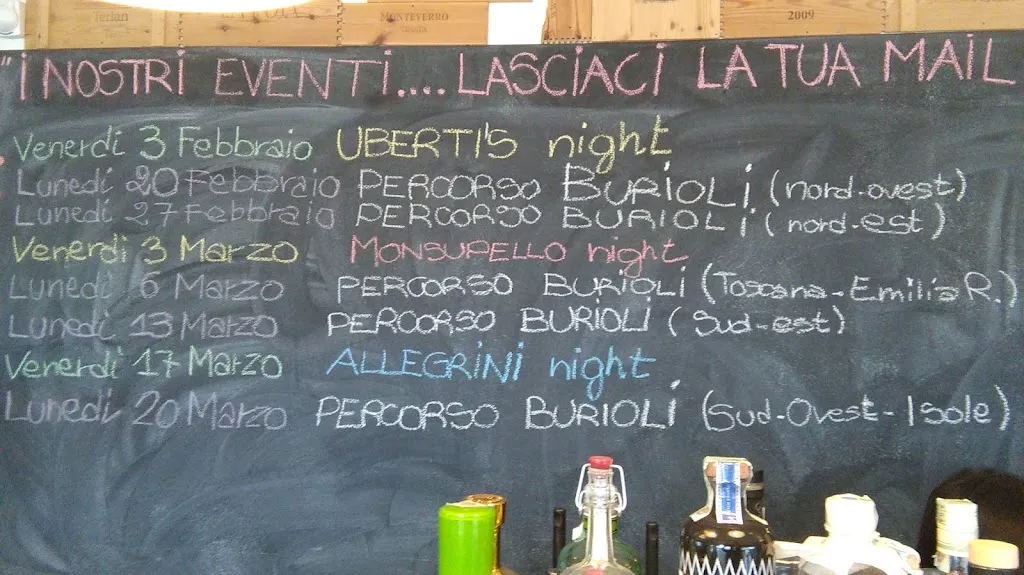 Terlan
MONTEVERRO
2009
"I NOSTRI EVENTI.... LASCIACI LA TUA MAIL
Venerdì 3 Febbraio UBERTI'S night
Lunedì 20 Febbraio PERCORSO BURIOLI (nord-ovest)
Lunedì 27 Febbraio PERCORSO BURIOLI (nord-est)
Venerdì 3 Marzo MONSUPELLO night
Lunedì 6 Marzo PERCORSO BURIOLI (Toscana-Emilia R.)
Lunedì 13 Marzo PERCORSO BURIOLI (Sud-est)
Venerdì 17 Marzo ALLEGRINI night
Lunedì 20 Marzo PERCORSO BURIOLI (Sud-Ovest-Isole)